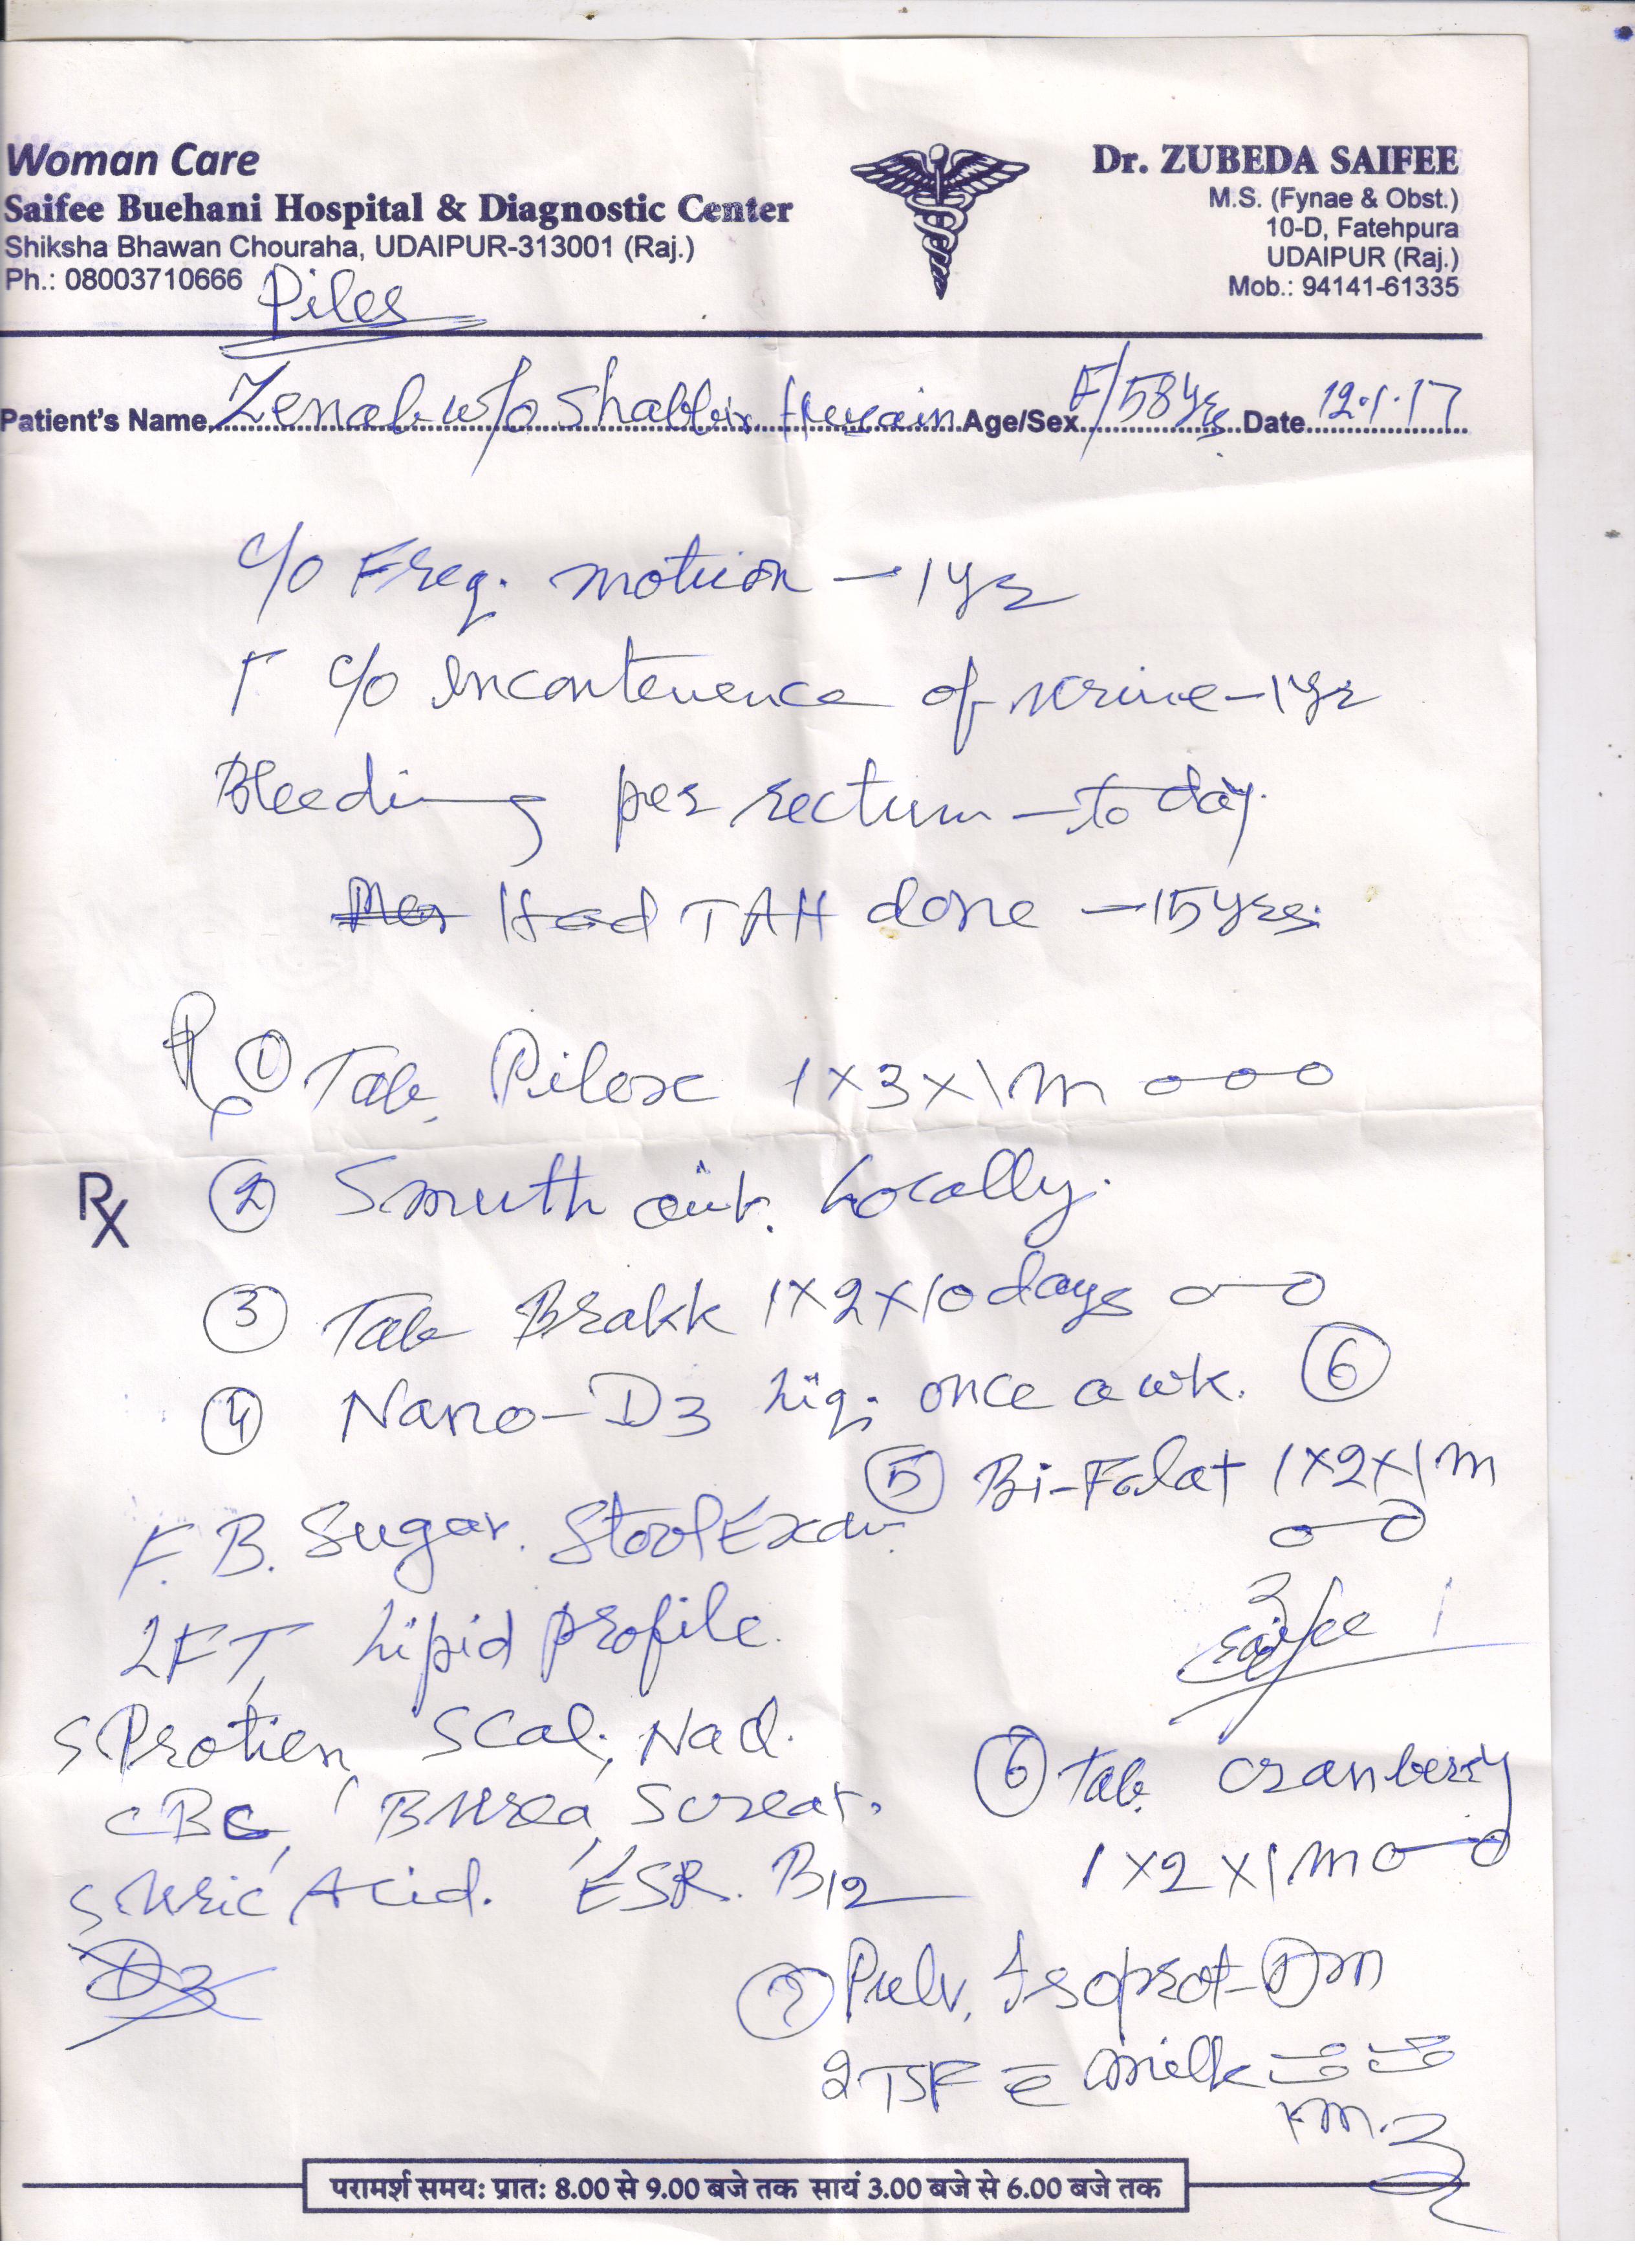 Woman Care
Saifee Buehani Hospital & Diagnostic Center
Shiksha Bhawan Chouraha, UDAIPUR-313001 (Raj.)
Ph.: 08003710666
Dr. ZUBEDA SAIFEE
M.S. (Fynae & Obst.)
10-D, Fatehpura
UDAIPUR (Raj.)
Mob.: 94141-61335
Piles
Patient's Name Zenab w/o Shabbir Husain Age/Sex F/58 yrs Date 12.1.17
c/o Freq. motion - 1 yr
c/o Incontenence of urine - 1 yr
Bleeding per rectum - to day.
Had TAH done - 15 yrs.
① Tab. Pilex 1 x 3 x 1 m
Rx ② Smuth oint. Locally.
③ Tab Brakk 1 x 2 x 10 days
④ Nano-D3 Liq. once a wk. ⑥
⑤ Bi-Folat 1 x 2 x 1 m
F. B. Sugar. Stool Exam
LFT, Lipid profile.
S Protien, S Cal., Na
CBC, B Urea, S Creat.
S Uric Acid. ESR. B12
D3
Saifee
⑥ Tab. Cranberry
1 x 2 x 1 m
⑦ Pulv. Isoprot-DM
2 TSF c̄ milk
परामर्श समय: प्रात: 8.00 से 9.00 बजे तक सायं 3.00 बजे से 6.00 बजे तक